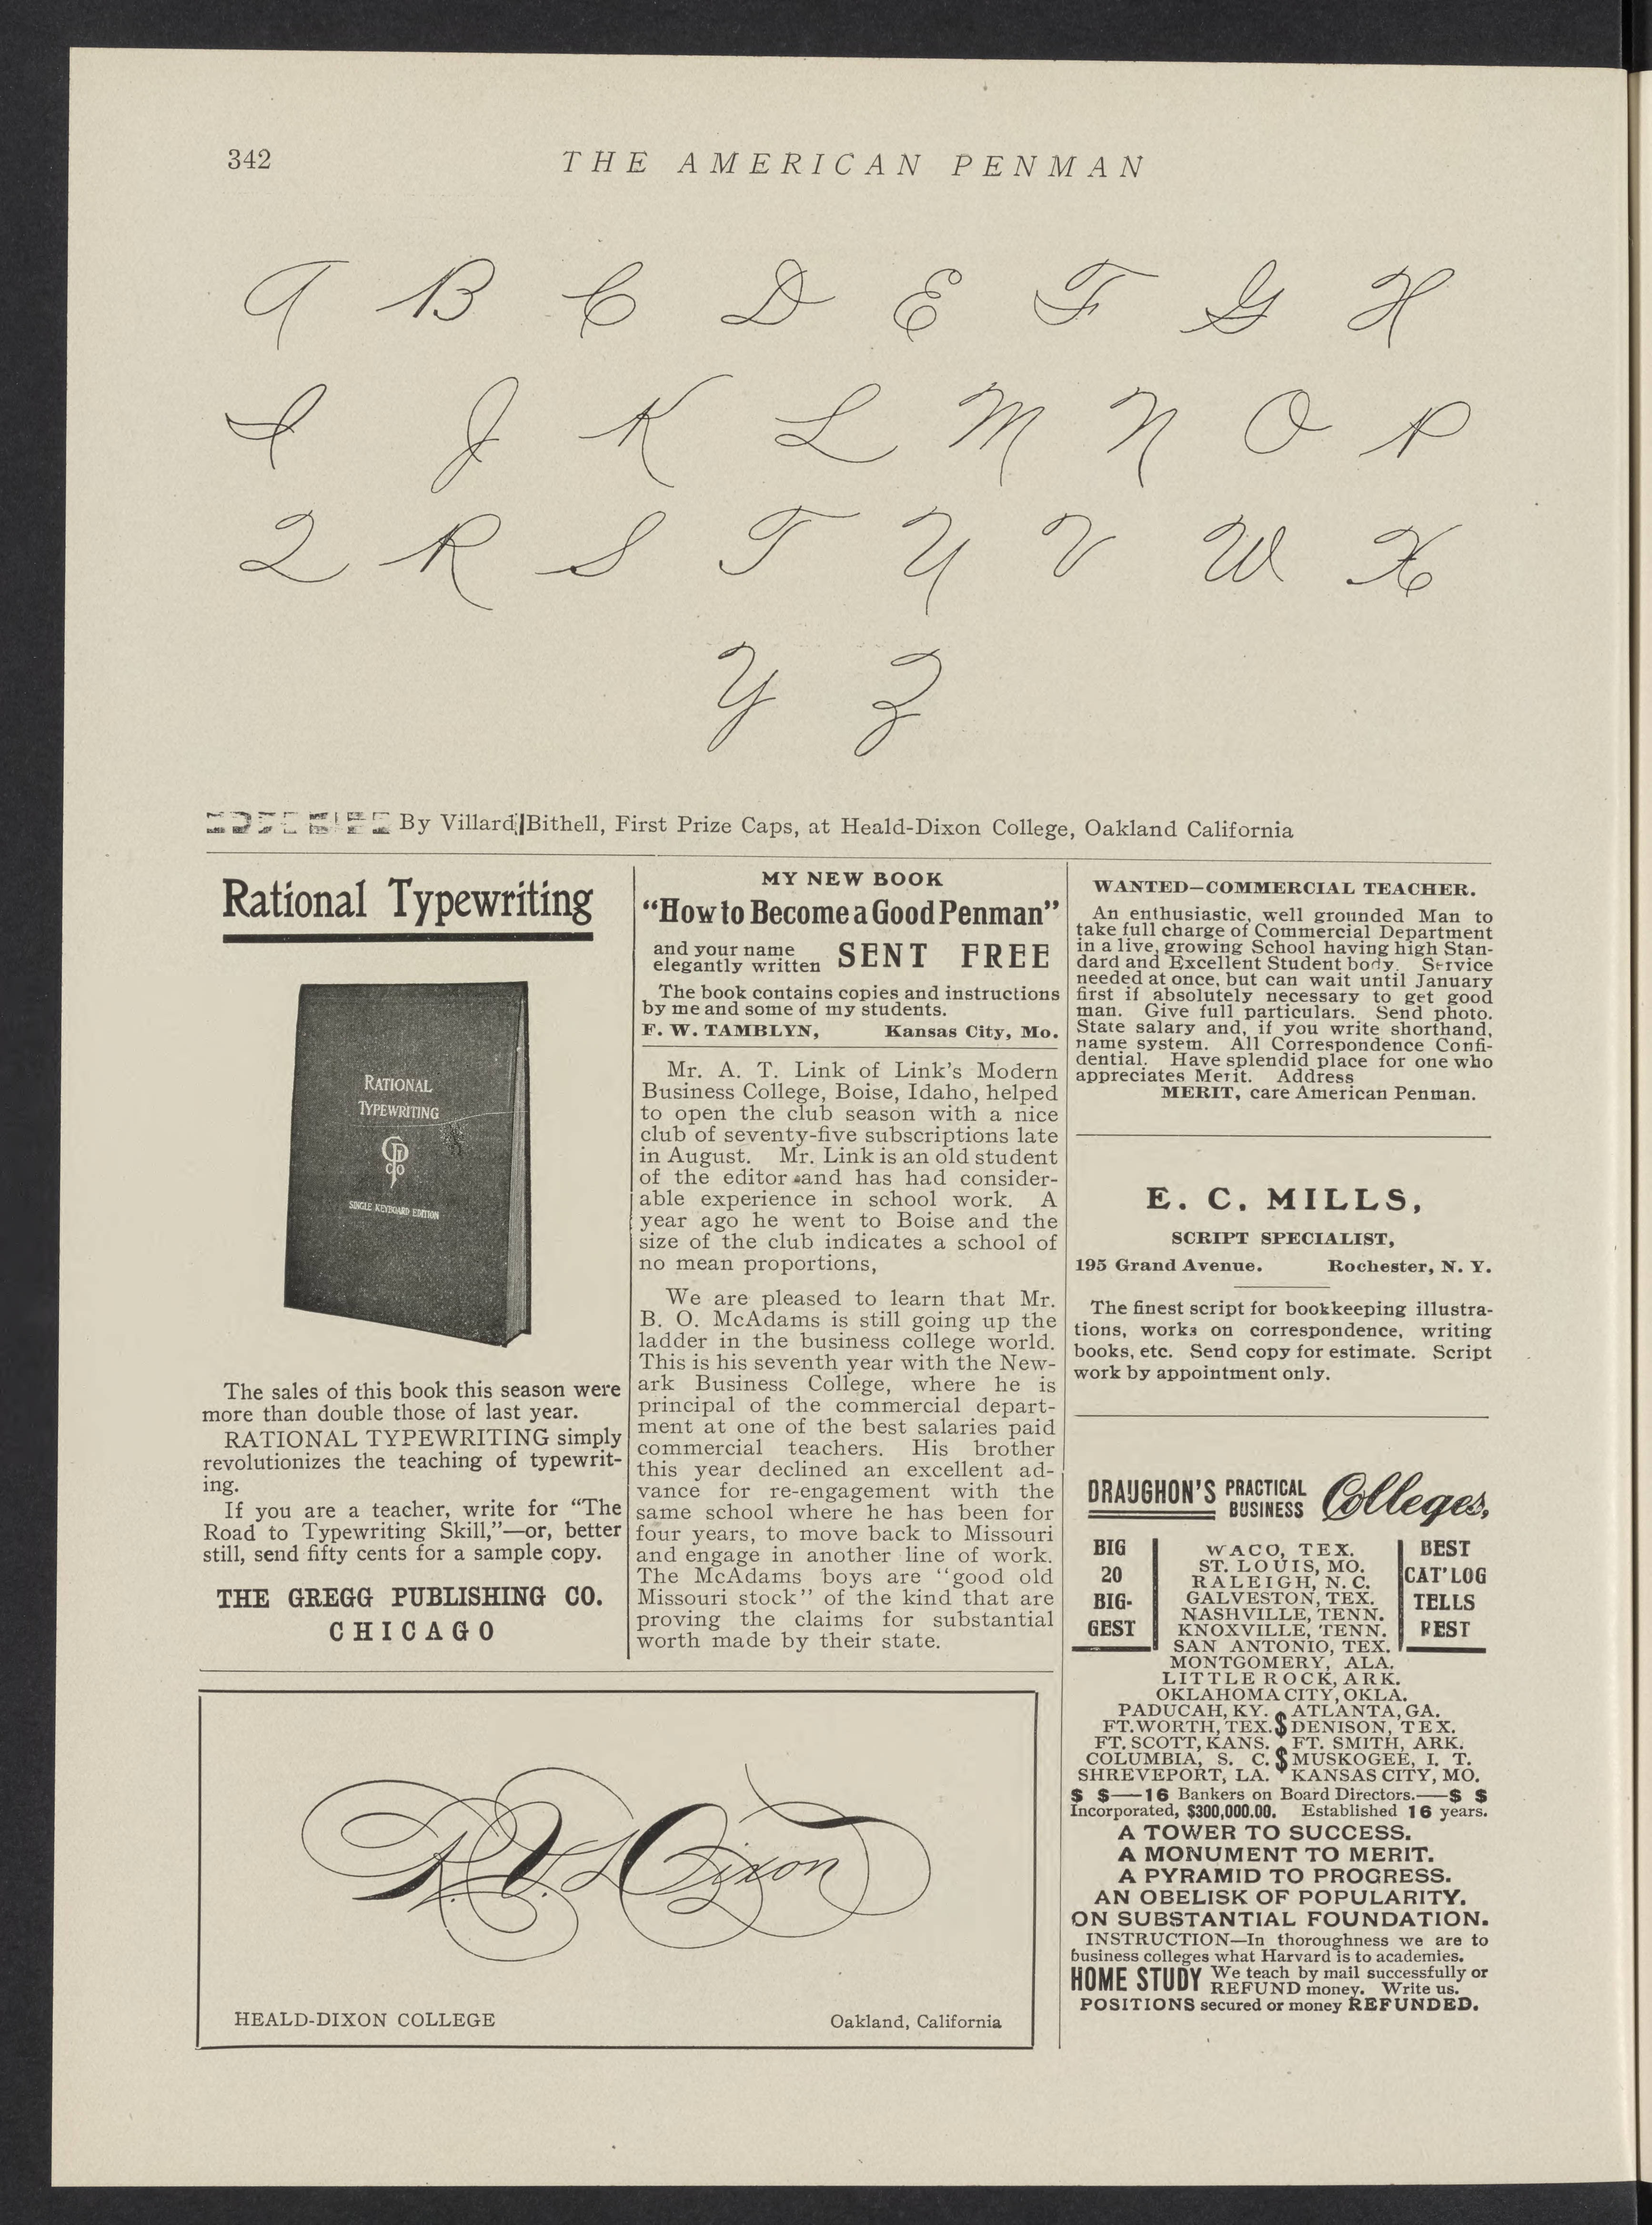 342
THE AMERICAN PENMAN
A B C D E F G H
I J K L M N O P
Q R S T U V W X
Y Z
By Villard Bithell, First Prize Caps, at Heald-Dixon College, Oakland California
Rational Typewriting
RATIONAL
TYPEWRITING
SINGLE KEYBOARD EDITION
The sales of this book this season were
more than double those of last year.
RATIONAL TYPEWRITING simply
revolutionizes the teaching of typewrit-
ing.
If you are a teacher, write for “The
Road to Typewriting Skill,”—or, better
still, send fifty cents for a sample copy.
THE GREGG PUBLISHING CO.
CHICAGO
MY NEW BOOK
“How to Become a Good Penman”
and your name
elegantly written SENT FREE
The book contains copies and instructions
by me and some of my students.
F. W. TAMBLYN, Kansas City, Mo.
Mr. A. T. Link of Link’s Modern
Business College, Boise, Idaho, helped
to open the club season with a nice
club of seventy-five subscriptions late
in August. Mr. Link is an old student
of the editor and has had consider-
able experience in school work. A
year ago he went to Boise and the
size of the club indicates a school of
no mean proportions,
We are pleased to learn that Mr.
B. O. McAdams is still going up the
ladder in the business college world.
This is his seventh year with the New-
ark Business College, where he is
principal of the commercial depart-
ment at one of the best salaries paid
commercial teachers. His brother
this year declined an excellent ad-
vance for re-engagement with the
same school where he has been for
four years, to move back to Missouri
and engage in another line of work.
The McAdams boys are “good old
Missouri stock” of the kind that are
proving the claims for substantial
worth made by their state.
WANTED—COMMERCIAL TEACHER.
An enthusiastic, well grounded Man to
take full charge of Commercial Department
in a live, growing School having high Stan-
dard and Excellent Student body. Service
needed at once, but can wait until January
first if absolutely necessary to get good
man. Give full particulars. Send photo.
State salary and, if you write shorthand,
name system. All Correspondence Confi-
dential. Have splendid place for one who
appreciates Merit. Address
MERIT, care American Penman.
E. C. MILLS,
SCRIPT SPECIALIST,
195 Grand Avenue. Rochester, N. Y.
The finest script for bookkeeping illustra-
tions, works on correspondence, writing
books, etc. Send copy for estimate. Script
work by appointment only.
DRAUGHON'S PRACTICAL BUSINESS Colleges,
BIG
20
BIG-
GEST
WACO, TEX.
ST. LOUIS, MO.
RALEIGH, N. C.
GALVESTON, TEX.
NASHVILLE, TENN.
KNOXVILLE, TENN.
SAN ANTONIO, TEX.
BEST
CAT'LOG
TELLS
REST
MONTGOMERY, ALA.
LITTLE ROCK, ARK.
OKLAHOMA CITY, OKLA.
PADUCAH, KY. ATLANTA, GA.
FT. WORTH, TEX. $ DENISON, TEX.
FT. SCOTT, KANS. FT. SMITH, ARK.
COLUMBIA, S. C. $ MUSKOGEE, I. T.
SHREVEPORT, LA. KANSAS CITY, MO.
$ $—16 Bankers on Board Directors.—$ $
Incorporated, $300,000.00. Established 16 years.
A TOWER TO SUCCESS.
A MONUMENT TO MERIT.
A PYRAMID TO PROGRESS.
AN OBELISK OF POPULARITY.
ON SUBSTANTIAL FOUNDATION.
INSTRUCTION—In thoroughness we are to
business colleges what Harvard is to academies.
HOME STUDY We teach by mail successfully or
REFUND money. Write us.
POSITIONS secured or money REFUNDED.
Dixon
HEALD-DIXON COLLEGE Oakland, California